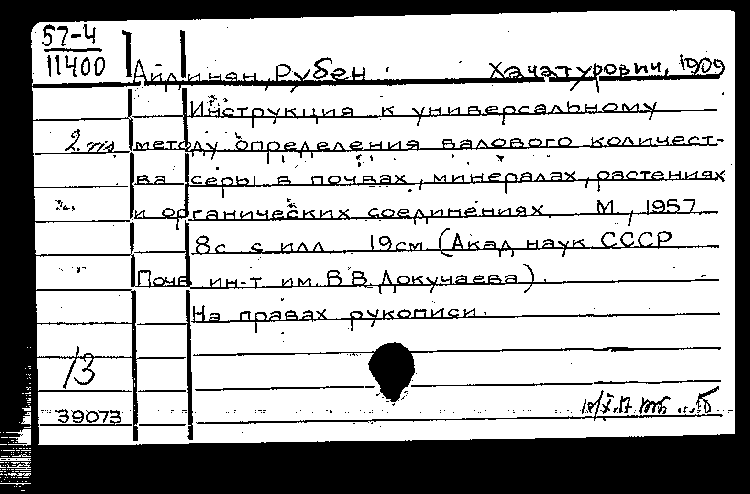 57-4
11400
Айдинян, Рубен Хачатурович, 1909
Инструкция к универсальному
2 тп. методу определения валового количест-
ва серы в почвах, минералах, растениях
и органических соединениях. М., 1957
8с с илл 19см (Акад наук СССР
Почв ин-т им. В В. Докучаева).
На правах рукописи.
13
39073